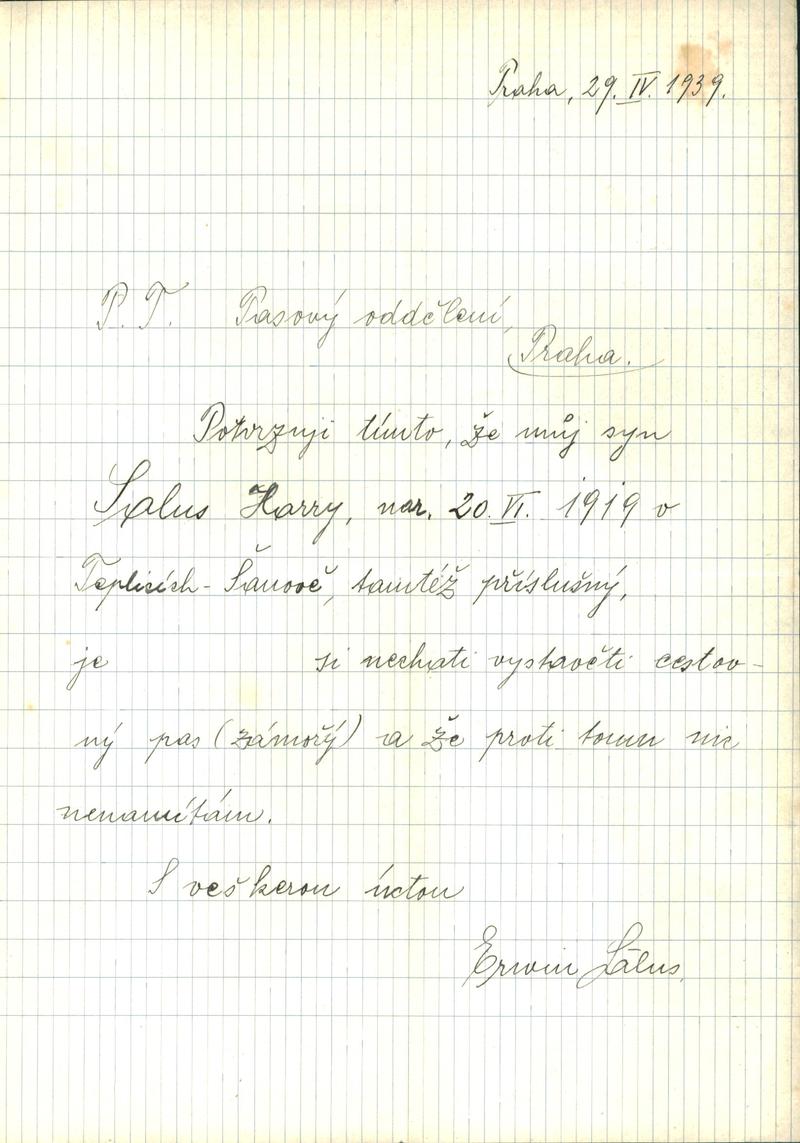 Praha, 29. IV. 1939.
P. T. Pasový oddělení,
Praha.
Potvrzuji tímto, že můj syn
Salus Harry, nar. 20. VI. 1919 v
Teplicích - Šanově, tamtéž příslušný,
je si nechati vystavěti cestov-
ný pas (zámořý) a že proti tomu nic
nenamítám.
S veškerou úctou
Erwin Salus.